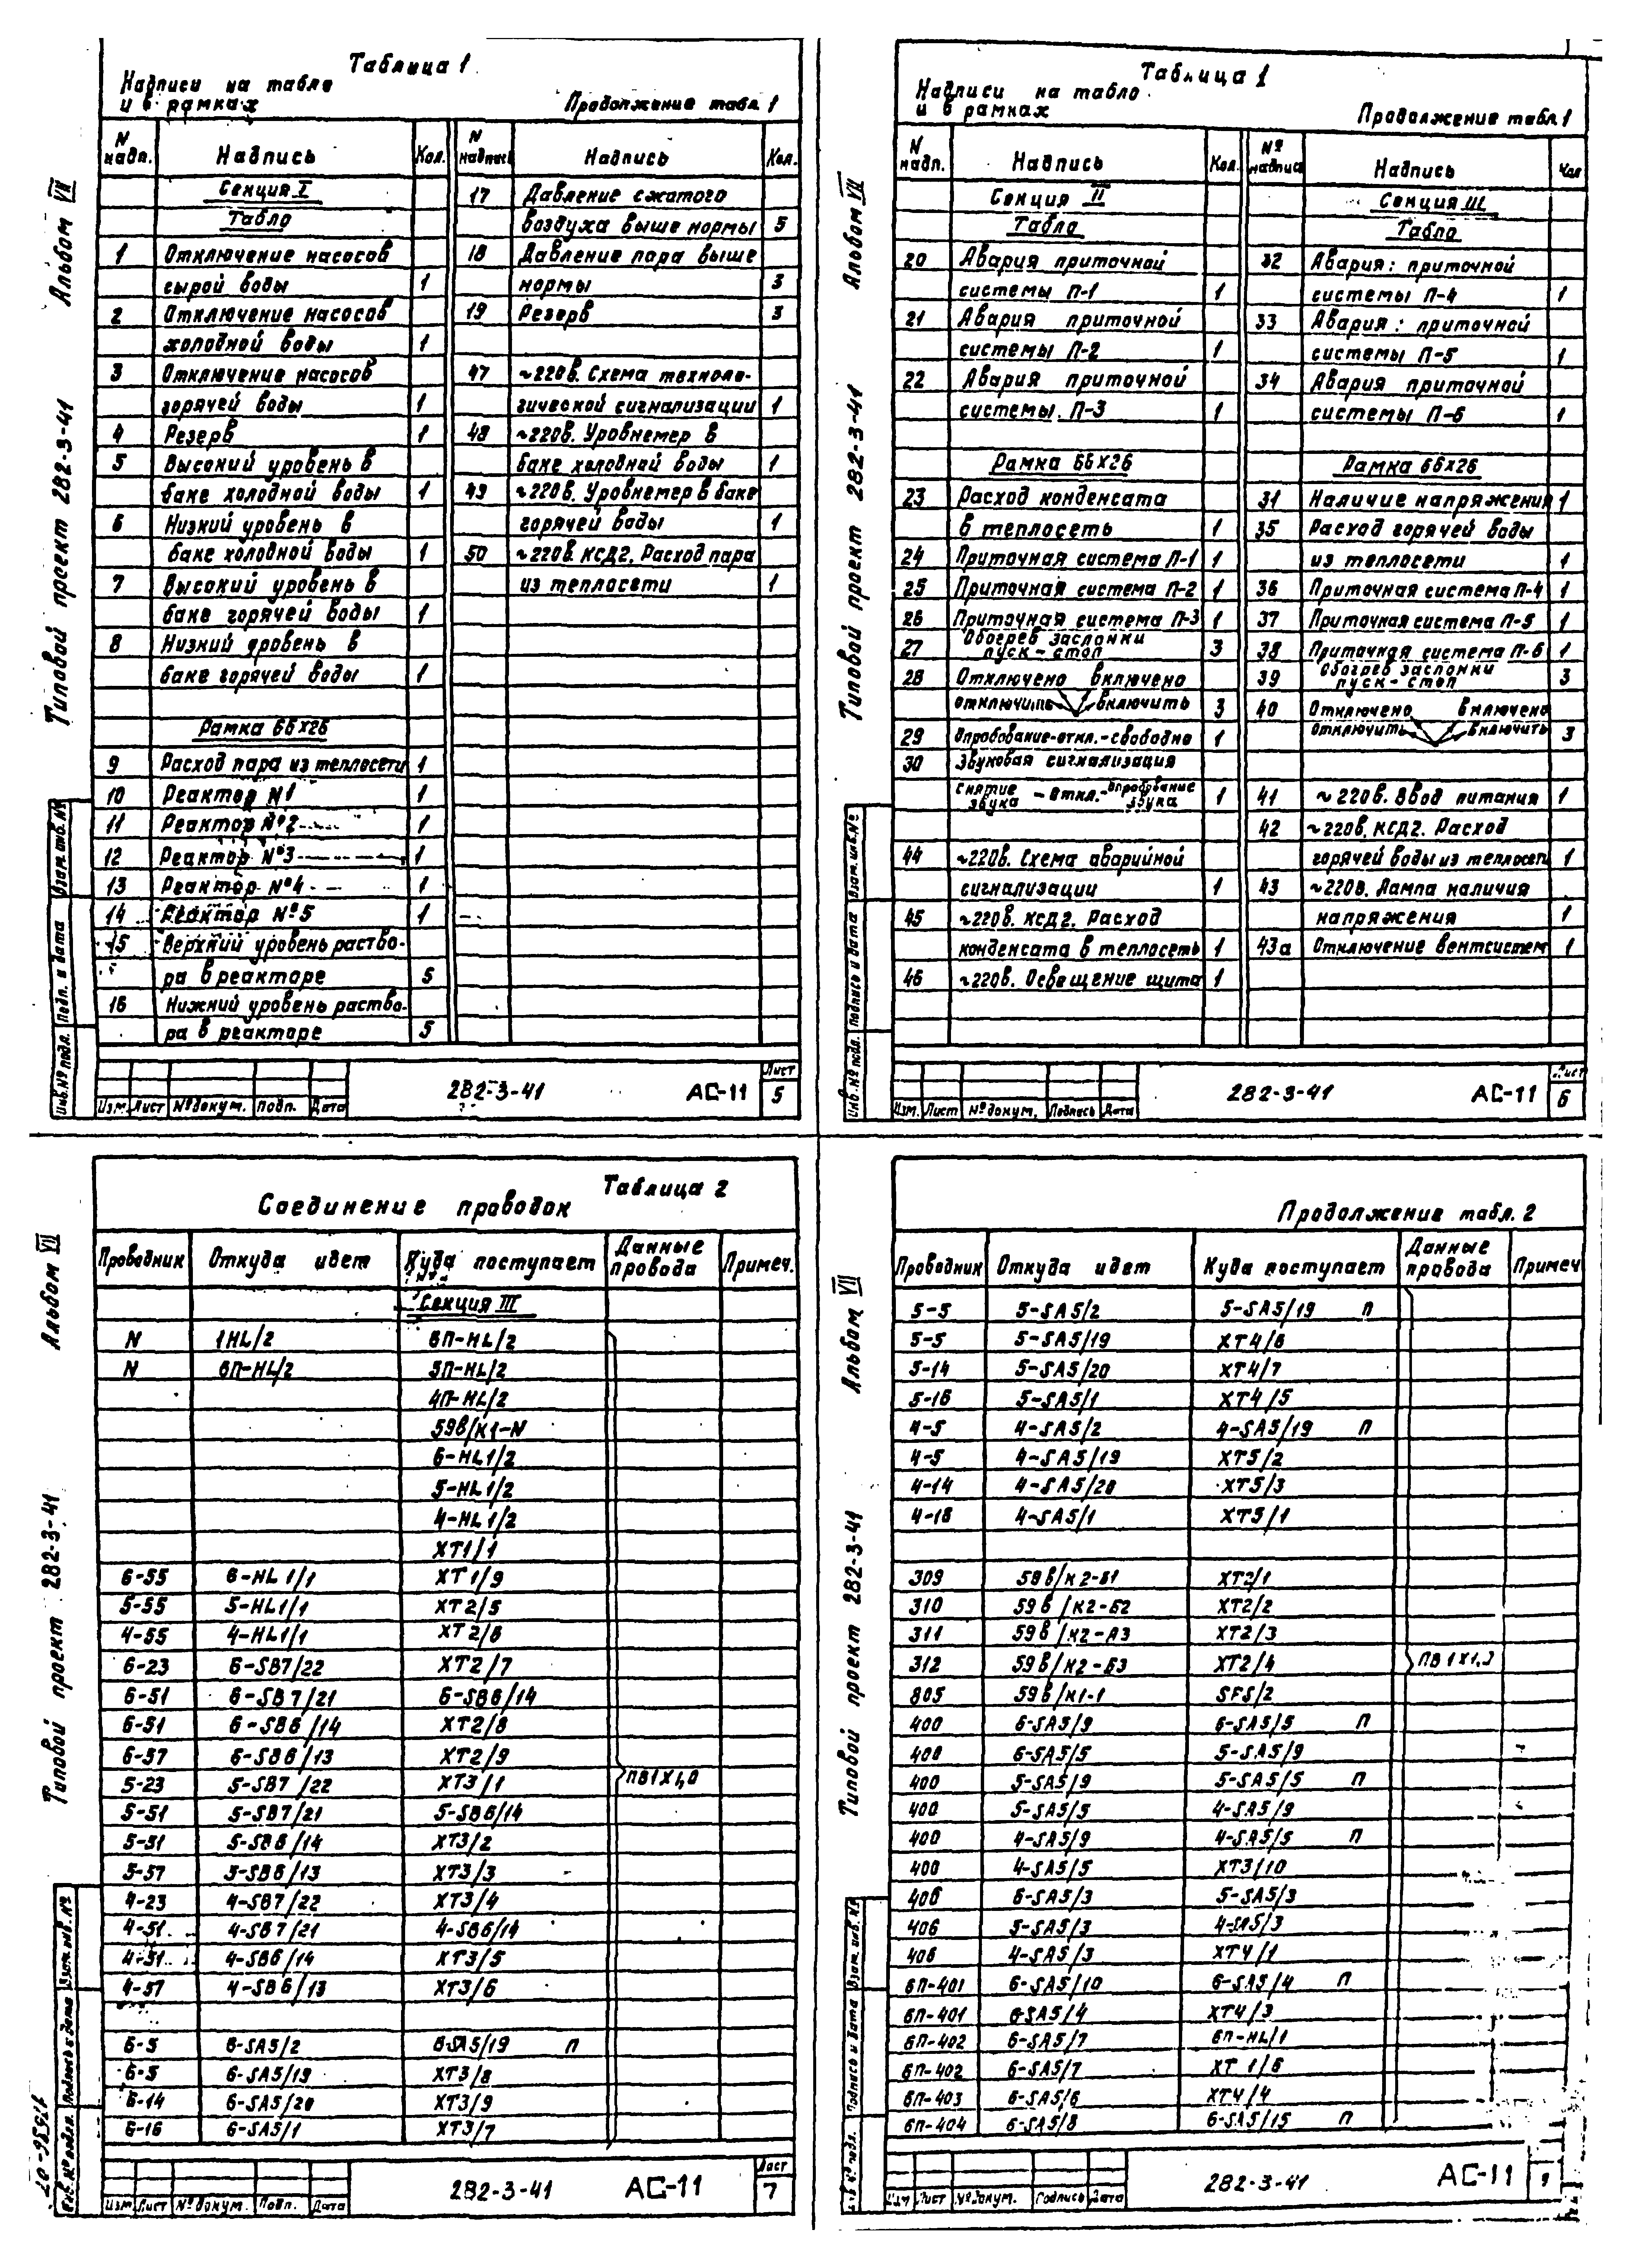 Таблица 1
Надписи на табло
и в рамках
Продолжение табл 1
N надп. Надпись Кол. N надпись Надпись Кол.
Секция I
Табло
1 Отключение насосов
сырой воды 1
2 Отключение насосов
холодной воды 1
3 Отключение насосов
горячей воды 1
4 Резерв 1
5 Высокий уровень в
баке холодной воды 1
6 Низкий уровень в
баке холодной воды 1
7 Высокий уровень в
баке горячей воды 1
8 Низкий уровень в
баке горячей воды 1
Рамка 66х26
9 Расход пара из теплосети 1
10 Реактор N1 1
11 Реактор №2 1
12 Реактор №3 1
13 Реактор №4 1
14 Реактор №5 1
15 Верхний уровень раство-
ра в реакторе 5
16 Нижний уровень раство-
ра в реакторе 5
17 Давление сжатого
воздуха выше нормы 5
18 Давление пара выше
нормы 3
19 Резерв 3
47 ~220в. Схема техноло-
гической сигнализации 1
48 ~220в. Уровнемер в
баке холодной воды 1
49 ~220в. Уровнемер в баке
горячей воды 1
50 ~220в. КСД2. Расход пара
из теплосети 1
Альбом VII
Типовой проект 282-3-41
Взам. инв. №
Подп. и дата
Инв. № подл.
Изм. Лист № докум. Подп. Дата
282-3-41 АС-11
Лист
5
Таблица 1
Надписи на табло
и в рамках
Продолжение табл 1
N надп. Надпись Кол. № надписи Надпись Кол
Секция II
Табло
20 Авария приточной
системы П-1 1
21 Авария приточной
системы П-2 1
22 Авария приточной
системы. П-3 1
Рамка 66х26
23 Расход конденсата
в теплосеть 1
24 Приточная система П-1 1
25 Приточная система П-2 1
26 Приточная система П-3 1
27 Обогрев заслонки
пуск-стоп 3
28 Отключено включено
отключить включить 3
29 Опробование-откл.-свободно 1
30 Звуковая сигнализация
снятие звука - откл.- опробование звука 1
44 ~220в. Схема аварийной
сигнализации 1
45 ~220в. КСД2. Расход
конденсата в теплосеть 1
46 ~220в. Освещение щита 1
Секция III
Табло
32 Авария: приточной
системы П-4 1
33 Авария: приточной
системы П-5 1
34 Авария приточной
системы П-6 1
Рамка 66х26
31 Наличие напряжения 1
35 Расход горячей воды
из теплосети 1
36 Приточная система П-4 1
37 Приточная система П-5 1
38 Приточная система П-6 1
39 Обогрев заслонки
пуск-стоп 3
40 Отключено включено
Отключить включить 3
41 ~220в. Ввод питания 1
42 ~220в. КСД2. Расход
горячей воды из теплосети 1
43 ~220в. Лампа наличия
напряжения 1
43а Отключение вентсистем 1
Альбом VII
Типовой проект 282-3-41
Взам. инв. №
Подпись и дата
Инв. № подл.
Изм. Лист № докум. Подпись Дата
282-3-41 АС-11
Лист
6
Таблица 2
Соединение проводок
Проводник Откуда идет Куда поступает Данные провода Примеч.
Секция III
N 1HL/2 6П-HL/2
N 6П-HL/2 5П-HL/2
4П-HL/2
59в/К1-N
6-HL1/2
5-HL1/2
4-HL1/2
XT1/1
6-55 6-HL1/1 XT1/9
5-55 5-HL1/1 XT2/5
4-55 4-HL1/1 XT2/6
6-23 6-SB7/22 XT2/7
6-51 6-SB7/21 6-SB6/14
6-51 6-SB6/14 XT2/8
6-57 6-SB6/13 XT2/9
ПВ1х1,0
5-23 5-SB7/22 XT3/1
5-51 5-SB7/21 5-SB6/14
5-51 5-SB6/14 XT3/2
5-57 5-SB6/13 XT3/3
4-23 4-SB7/22 XT3/4
4-51 4-SB7/21 4-SB6/14
4-51 4-SB6/14 XT3/5
4-57 4-SB6/13 XT3/6
6-5 6-SA5/2 6-SA5/19 П
6-5 6-SA5/19 XT3/8
6-14 6-SA5/20 XT3/9
6-16 6-SA5/1 XT3/7
Альбом VII
Типовой проект 282-3-41
Взам. инв. №
Подпись и дата
Инв. № подл.
Изм Лист № докум. Подп. Дата
282-3-41 АС-11
Лист
7
Продолжение табл. 2
Проводник Откуда идет Куда поступает Данные провода Примеч
5-5 5-SA5/2 5-SA5/19 П
5-5 5-SA5/19 XT4/6
5-14 5-SA5/20 XT4/7
5-16 5-SA5/1 XT4/5
4-5 4-SA5/2 4-SA5/19 П
4-5 4-SA5/19 XT5/2
4-14 4-SA5/20 XT5/3
4-16 4-SA5/1 XT5/1
309 59в/К2-Б1 XT2/1
310 59в/К2-Б2 XT2/2
311 59в/К2-А3 XT2/3
312 59в/К2-Б3 XT2/4
805 59в/К1-1 SF5/2
400 6-SA5/9 6-SA5/5 П
400 6-SA5/5 5-SA5/9
400 5-SA5/9 5-SA5/5 П
400 5-SA5/5 4-SA5/9
400 4-SA5/9 4-SA5/5 П
400 4-SA5/5 XT3/10
406 6-SA5/3 5-SA5/3
406 5-SA5/3 4-SA5/3
406 4-SA5/3 XT4/1
6П-401 6-SA5/10 6-SA5/4 П
6П-401 6-SA5/4 XT4/3
6П-402 6-SA5/7 6П-HL/1
6П-402 6-SA5/7 XT1/6
6П-403 6-SA5/6 XT4/4
6П-404 6-SA5/8 6-SA5/15 П
Альбом VII
Типовой проект 282-3-41
Взам. инв. №
Подпись и дата
Изм Лист № докум. Подпись Дата
282-3-41 АС-11